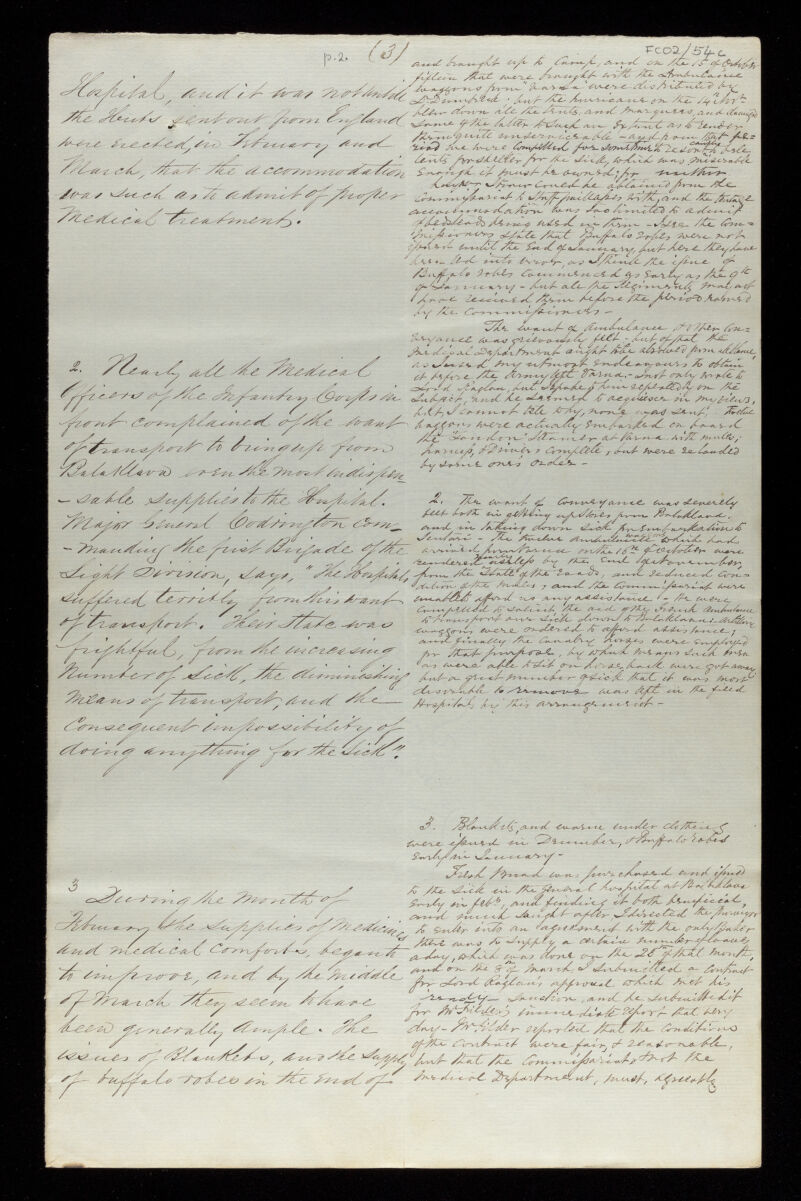 p.2. (3)
FCO2/54c
Hospital, and it was not until
the Huts sent out from England
were erected, in February and
March, that the accommodation
was such as to admit of proper
Medical treatment.
2. Nearly all the Medical
Officers of the Infantry Corps in
front complained of the want
of transport to bring up from
Balaklava even the most indispen-
-sable supplies to the Hospital.
Major General Codrington com-
-manding the first Brigade of the
Light Division, says, "The Hospitals
suffered terribly from this want
of transport. Their state was
frightful, from the increasing
number of Sick, the diminishing
means of transport, and the
consequent impossibility of
doing anything for the Sick".
3 During the month of
February the supplies of medicines
and medical comforts, began
to improve, and by the middle
of March they seem to have
been generally ample. The
issues of Blankets, and the supply
of buffalo robes in the end of
and brought up to Camp, and on the 15th of October
fifteen that were brought with the Ambulance
waggons from Varna were distributed by
Dr Dumbreck; but the hurricane on the 14th Novr
blew down all the tents and marquees, and damaged
some of the latter to such an extent as to render
them quite unserviceable - and from that pe-
riod we were compelled for some time to resort to bele
tents for shelter for the sick, which was miserable
enough it must be owned; for neither
hay or straw could be obtained from the
Commissariat to stuff paillasses with, and the tentage
accommodation was too limited to admit
of bedsteads being used in them - I see the Com-
missioners state that Buffalo robes were not
issued until the end of January, but here they have
been led into error, as I think the issue of
Buffalo robes commenced as early as the 9th
of January - but all the Regiments may not
have received them before the period named
by the Commissioners -
The want of Ambulance & other Con-
veyance was grievously felt - but of that the
Medical Department ought to be absolved from all blame,
as I used my utmost endeavours to obtain
it before the Army left Varna - I not only wrote to
Lord Raglan, but I spoke to him repeatedly on the
subject, and he seemed to acquiesce in my views,
but I cannot tell why, none was sent. Twelve
waggons were actually embarked on board
the "London" Steamer at Varna with mules,
harness, & Drivers complete, but were relanded
by some one's order -
2. The want of conveyance was severely
felt both in getting up Stores from Balaklava
and in taking down sick for embarkation to
Scutari - The twelve Ambulance waggons which had
arrived from Varna on the 16th of October were
rendered nearly useless by the end of November,
from the State of the roads, and reduced con-
dition of the mules; and the Commissariat were
unable to afford us any assistance - We were
compelled to solicit the aid of the French Ambulance
to transport our sick down to Balaklava - Artillery
waggons were ordered to afford assistance,
and finally the Cavalry horses were employed
for that purpose, by which means such men
as were able to sit on horseback were got away,
but a great number of sick that it was most
desirable to remove was left in the field
Hospitals by this arrangement -
3. Blankets, and warm under clothing
were issued in December, & Buffalo Robes
early in January -
Fresh Bread was purchased and issued
to the Sick in the general hospital at Balaklava
early in Feby, and finding it both beneficial,
and much sought after I directed the Purveyor
to enter into an agreement with the only Baker
there was to supply a certain number of loaves
a day, which was done on the 26th of that month,
and on the 8th of March I submitted a contract
for Lord Raglan's approval which met his
ready sanction, and he submitted it
for Mr Filder's immediate report that very
day - Mr Filder reported that the conditions
of the contract were fair & reasonable,
but that the Commissariat, & not the
Medical Department, must, agreeably